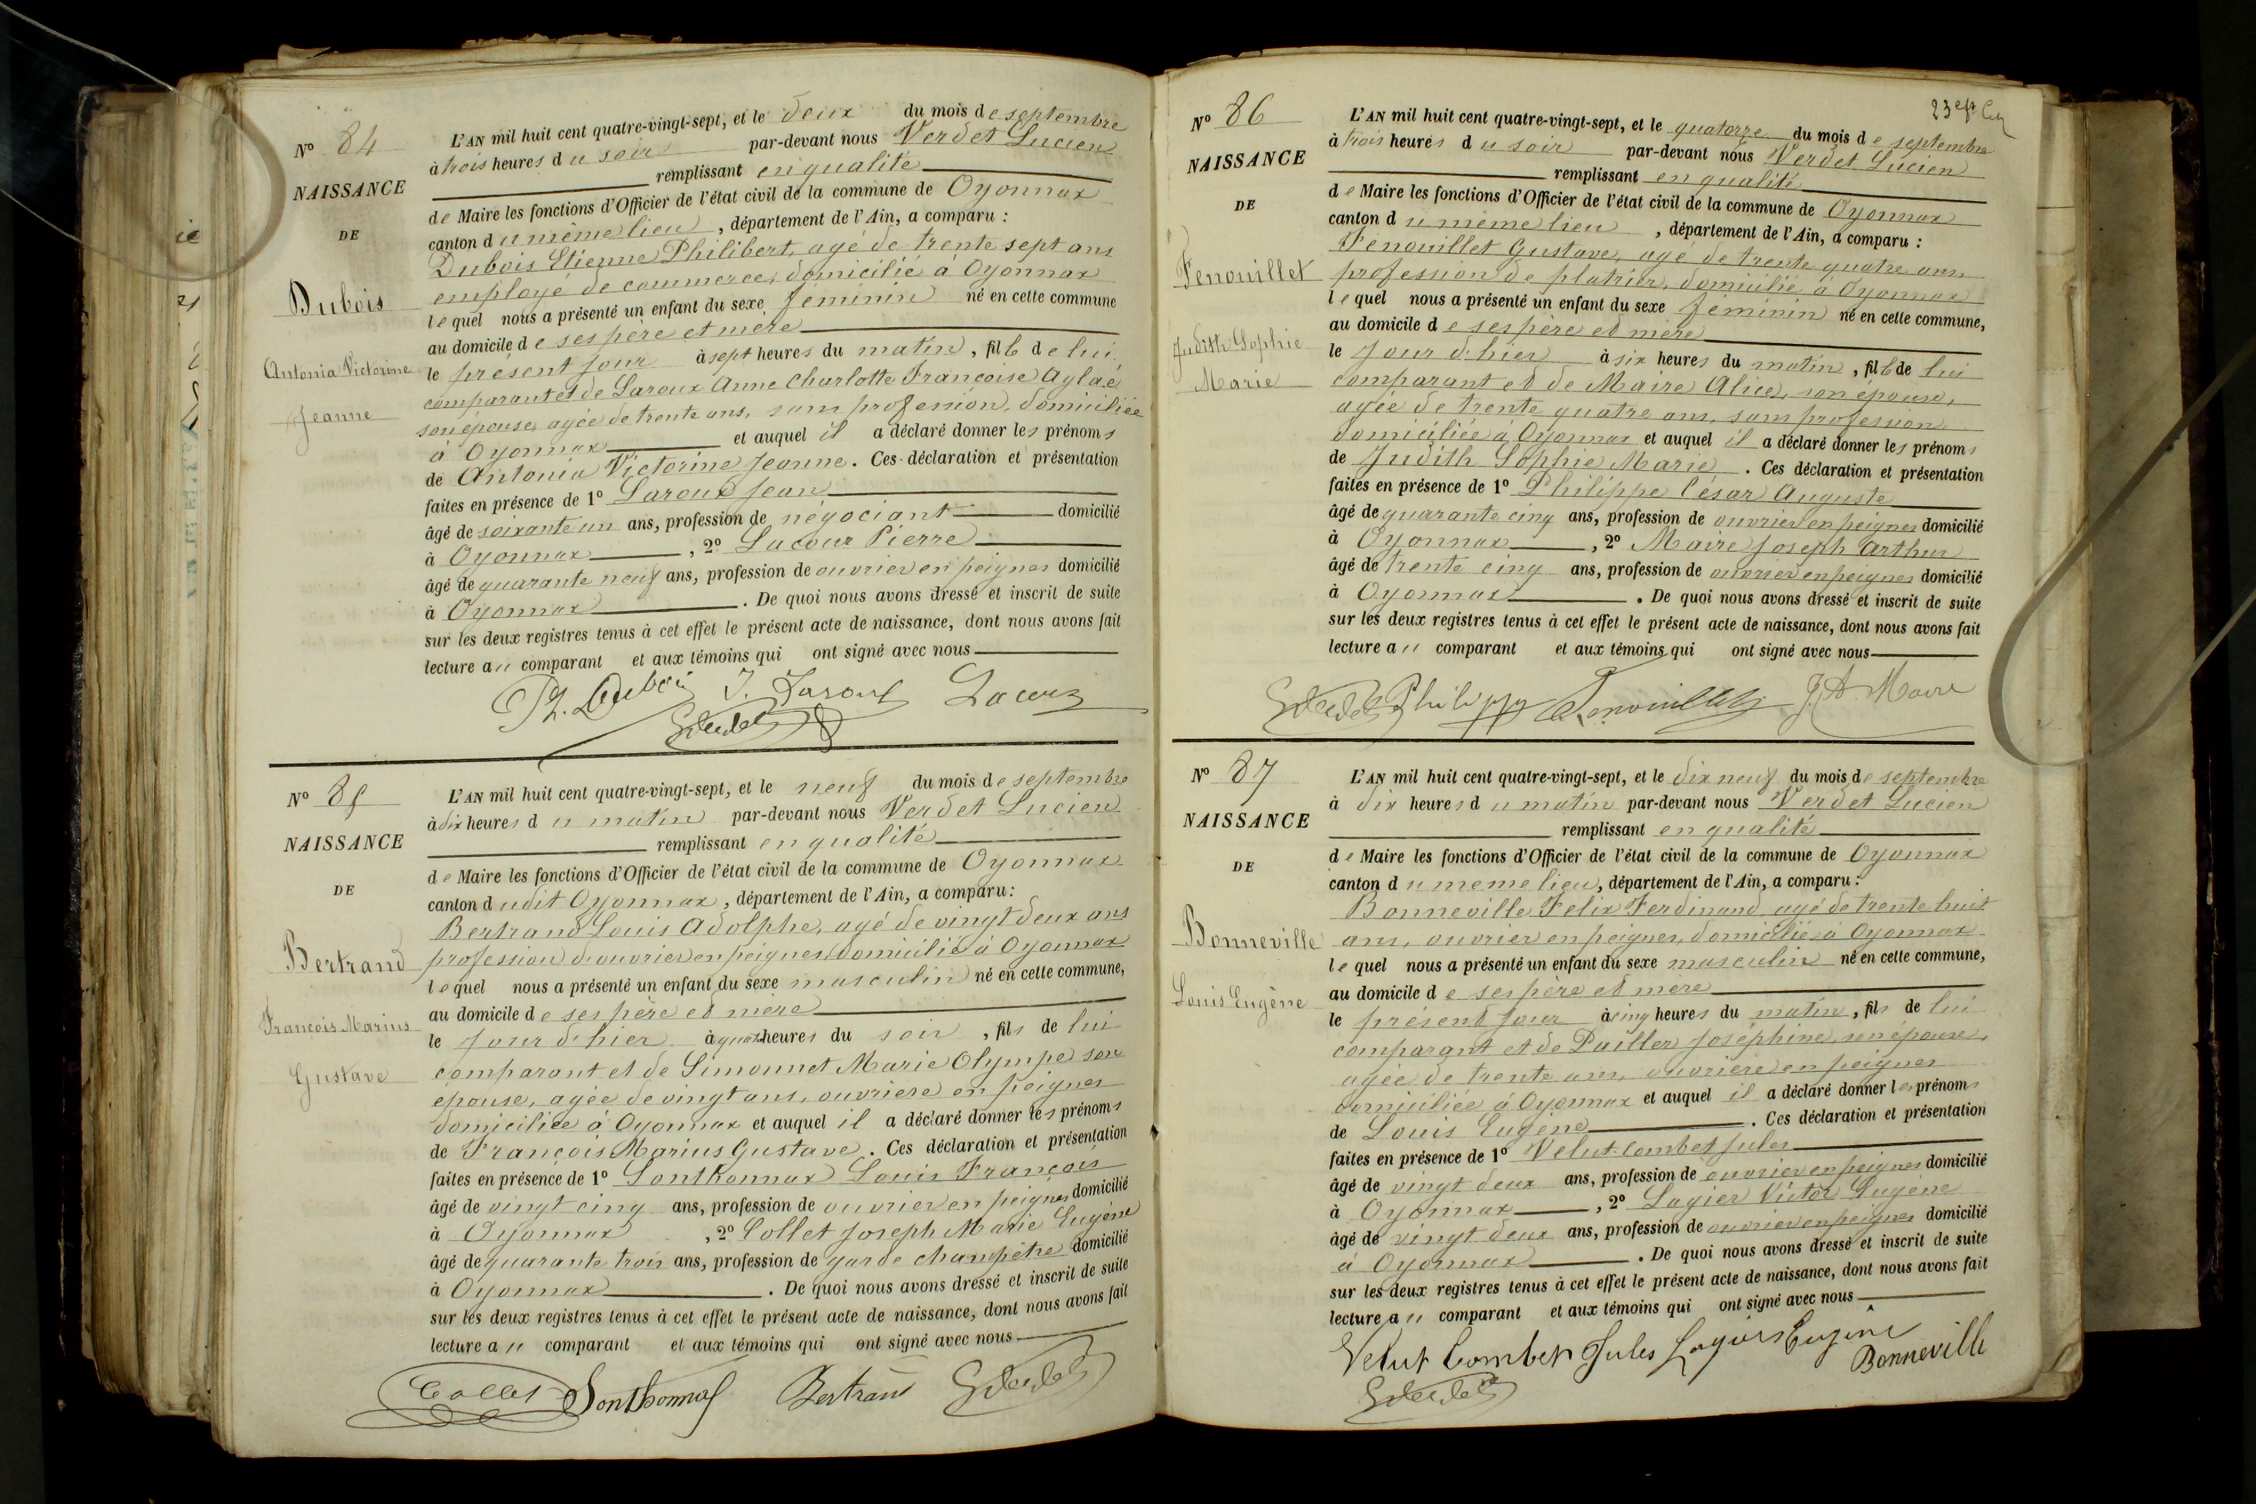 Nº 84
NAISSANCE
DE
Dubois
Antonia Victorine
Jeanne
L'AN mil huit cent quatre-vingt-sept, et le deux du mois de septembre
à trois heures du soir par-devant nous Verdet Lucien
remplissant en qualité
de Maire les fonctions d'Officier de l'état civil de la commune de Oyonnax
canton du même lieu, département de l'Ain, a comparu :
Dubois Etienne Philibert, agé de trente sept ans
employé de commerce, domicilié à Oyonnax
lequel nous a présenté un enfant du sexe féminin né en cette commune
au domicile de ses père et mère
le présent jour à sept heures du matin, fille de lui
comparant et de Laroux Anne Charlotte Françoise Aglaé
son épouse, agée de trente ans, sans profession, domiciliée
à Oyonnax et auquel il a déclaré donner les prénoms
de Antonia Victorine Jeanne. Ces déclaration et présentation
faites en présence de 1º Laroux Jean
âgé de soixante un ans, profession de négociant domicilié
à Oyonnax, 2º Lacour Pierre
âgé de quarante neuf ans, profession de ouvrier en peignes domicilié
à Oyonnax. De quoi nous avons dressé et inscrit de suite
sur les deux registres tenus à cet effet le présent acte de naissance, dont nous avons fait
lecture au comparant et aux témoins qui ont signé avec nous
Ph. Dubois J. Laroux Lacour
Nº 85
NAISSANCE
DE
Bertrand
François Marius
Gustave
L'AN mil huit cent quatre-vingt-sept, et le neuf du mois de septembre
à dix heures du matin par-devant nous Verdet Lucien
remplissant en qualité
de Maire les fonctions d'Officier de l'état civil de la commune de Oyonnax
canton dudit Oyonnax, département de l'Ain, a comparu :
Bertrand Louis Adolphe, agé de vingt deux ans
profession d'ouvrier en peignes, domicilié à Oyonnax
lequel nous a présenté un enfant du sexe masculin né en cette commune,
au domicile de ses père et mère
le jour d'hier à heures du soir, fils de lui
comparant et de Simonnet Marie Olympe son
épouse, agée de vingt ans, ouvrière en peignes
domiciliée à Oyonnax et auquel il a déclaré donner les prénoms
de François Marius Gustave. Ces déclaration et présentation
faites en présence de 1º Sonthonnax Louis François
âgé de vingt cinq ans, profession de ouvrier en peignes domicilié
à Oyonnax, 2º Collet Joseph Marie Eugène
âgé de quarante trois ans, profession de garde champêtre domicilié
à Oyonnax. De quoi nous avons dressé et inscrit de suite
sur les deux registres tenus à cet effet le présent acte de naissance, dont nous avons fait
lecture au comparant et aux témoins qui ont signé avec nous
Collet Sonthonnax Bertrand
Nº 86
NAISSANCE
DE
Fenouillet
Judith Sophie
Marie
L'AN mil huit cent quatre-vingt-sept, et le quatorze du mois de septembre
à trois heures du soir par-devant nous Verdet Lucien
remplissant en qualité
de Maire les fonctions d'Officier de l'état civil de la commune de Oyonnax
canton du même lieu, département de l'Ain, a comparu :
Fenouillet Gustave, age de trente quatre ans
profession de platrier, domicilié à Oyonnax
lequel nous a présenté un enfant du sexe féminin né en cette commune,
au domicile de ses père et mère
le jour d'hier à six heures du matin, fille de lui
comparant et de Maire Alice, son épouse,
agée de trente quatre ans, sans profession
domiciliée à Oyonnax et auquel il a déclaré donner les prénoms
de Judith Sophie Marie. Ces déclaration et présentation
faites en présence de 1º Philippe César Auguste
âgé de quarante cinq ans, profession de ouvrier en peignes domicilié
à Oyonnax, 2º Maire Joseph Arthur
âgé de trente cinq ans, profession de ouvrier en peignes domicilié
à Oyonnax. De quoi nous avons dressé et inscrit de suite
sur les deux registres tenus à cet effet le présent acte de naissance, dont nous avons fait
lecture au comparant et aux témoins qui ont signé avec nous
Philippe Fenouillet J. A Maire
Nº 87
NAISSANCE
DE
Bonneville
Louis Eugène
L'AN mil huit cent quatre-vingt-sept, et le dix neuf du mois de septembre
à dix heures du matin par-devant nous Verdet Lucien
remplissant en qualité
de Maire les fonctions d'Officier de l'état civil de la commune de Oyonnax
canton du meme lieu, département de l'Ain, a comparu :
Bonneville Felix Ferdinand agé de trente huit
ans, ouvrier en peignes, domicilié à Oyonnax
lequel nous a présenté un enfant du sexe masculin né en cette commune,
au domicile de ses père et mère
le présent jour à cinq heures du matin, fils de lui
comparant et de Pailler Joséphine, son épouse,
agée de trente ans, ouvrière en peignes
domiciliée à Oyonnax et auquel il a déclaré donner les prénoms
de Louis Eugène. Ces déclaration et présentation
faites en présence de 1º Velut-Combet Jules
âgé de vingt deux ans, profession de ouvrier en peignes domicilié
à Oyonnax, 2º Lagier Victor Eugène
âgé de vingt deux ans, profession de ouvrier en peignes domicilié
à Oyonnax. De quoi nous avons dressé et inscrit de suite
sur les deux registres tenus à cet effet le présent acte de naissance, dont nous avons fait
lecture au comparant et aux témoins qui ont signé avec nous
Velut Combet Jules Lagier Eugène
Bonneville